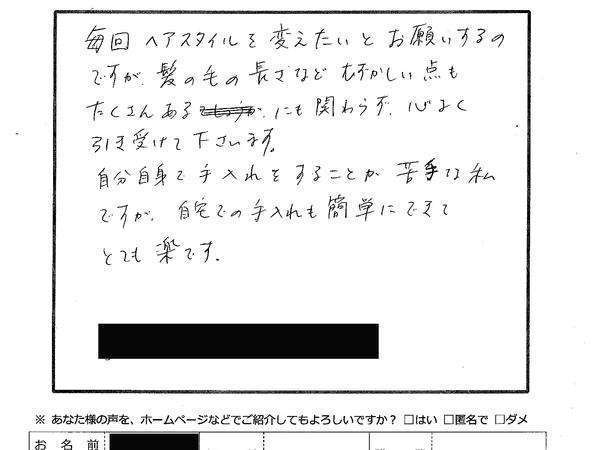 毎回 ヘアスタイルを変えたいとお願いするの
ですが、髪の毛の長さなどむずかしい点も
たくさんある にも関わらず、心よく
引き受けて下さいます。
自分自身で手入れをすることが苦手な私
ですが、自宅での手入れも簡単にできて
とても楽です。
※ あなた様の声を、ホームページなどでご紹介してもよろしいですか？ □はい □匿名で □ダメ
お 名 前